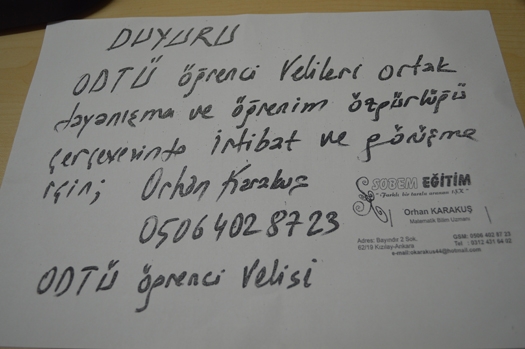 DUYURU
ODTÜ öğrenci Velileri ortak
dayanışma ve öğrenim özgürlüğü
çerçevesinde irtibat ve görüşme
için; Orhan Karakuş
0506 402 87 23
ODTÜ öğrenci Velisi
SOBEM EĞİTİM
"Farklı bir
Orhan KARAKUŞ
Matematik Bilim Uzmanı
Adres: Bayındır 2 Sok. GSM: 0506 402 87 23
62/19 Kızılay-Ankara Tel : 0312 431 64 02
e-mail:okarakus44@hotmail.com